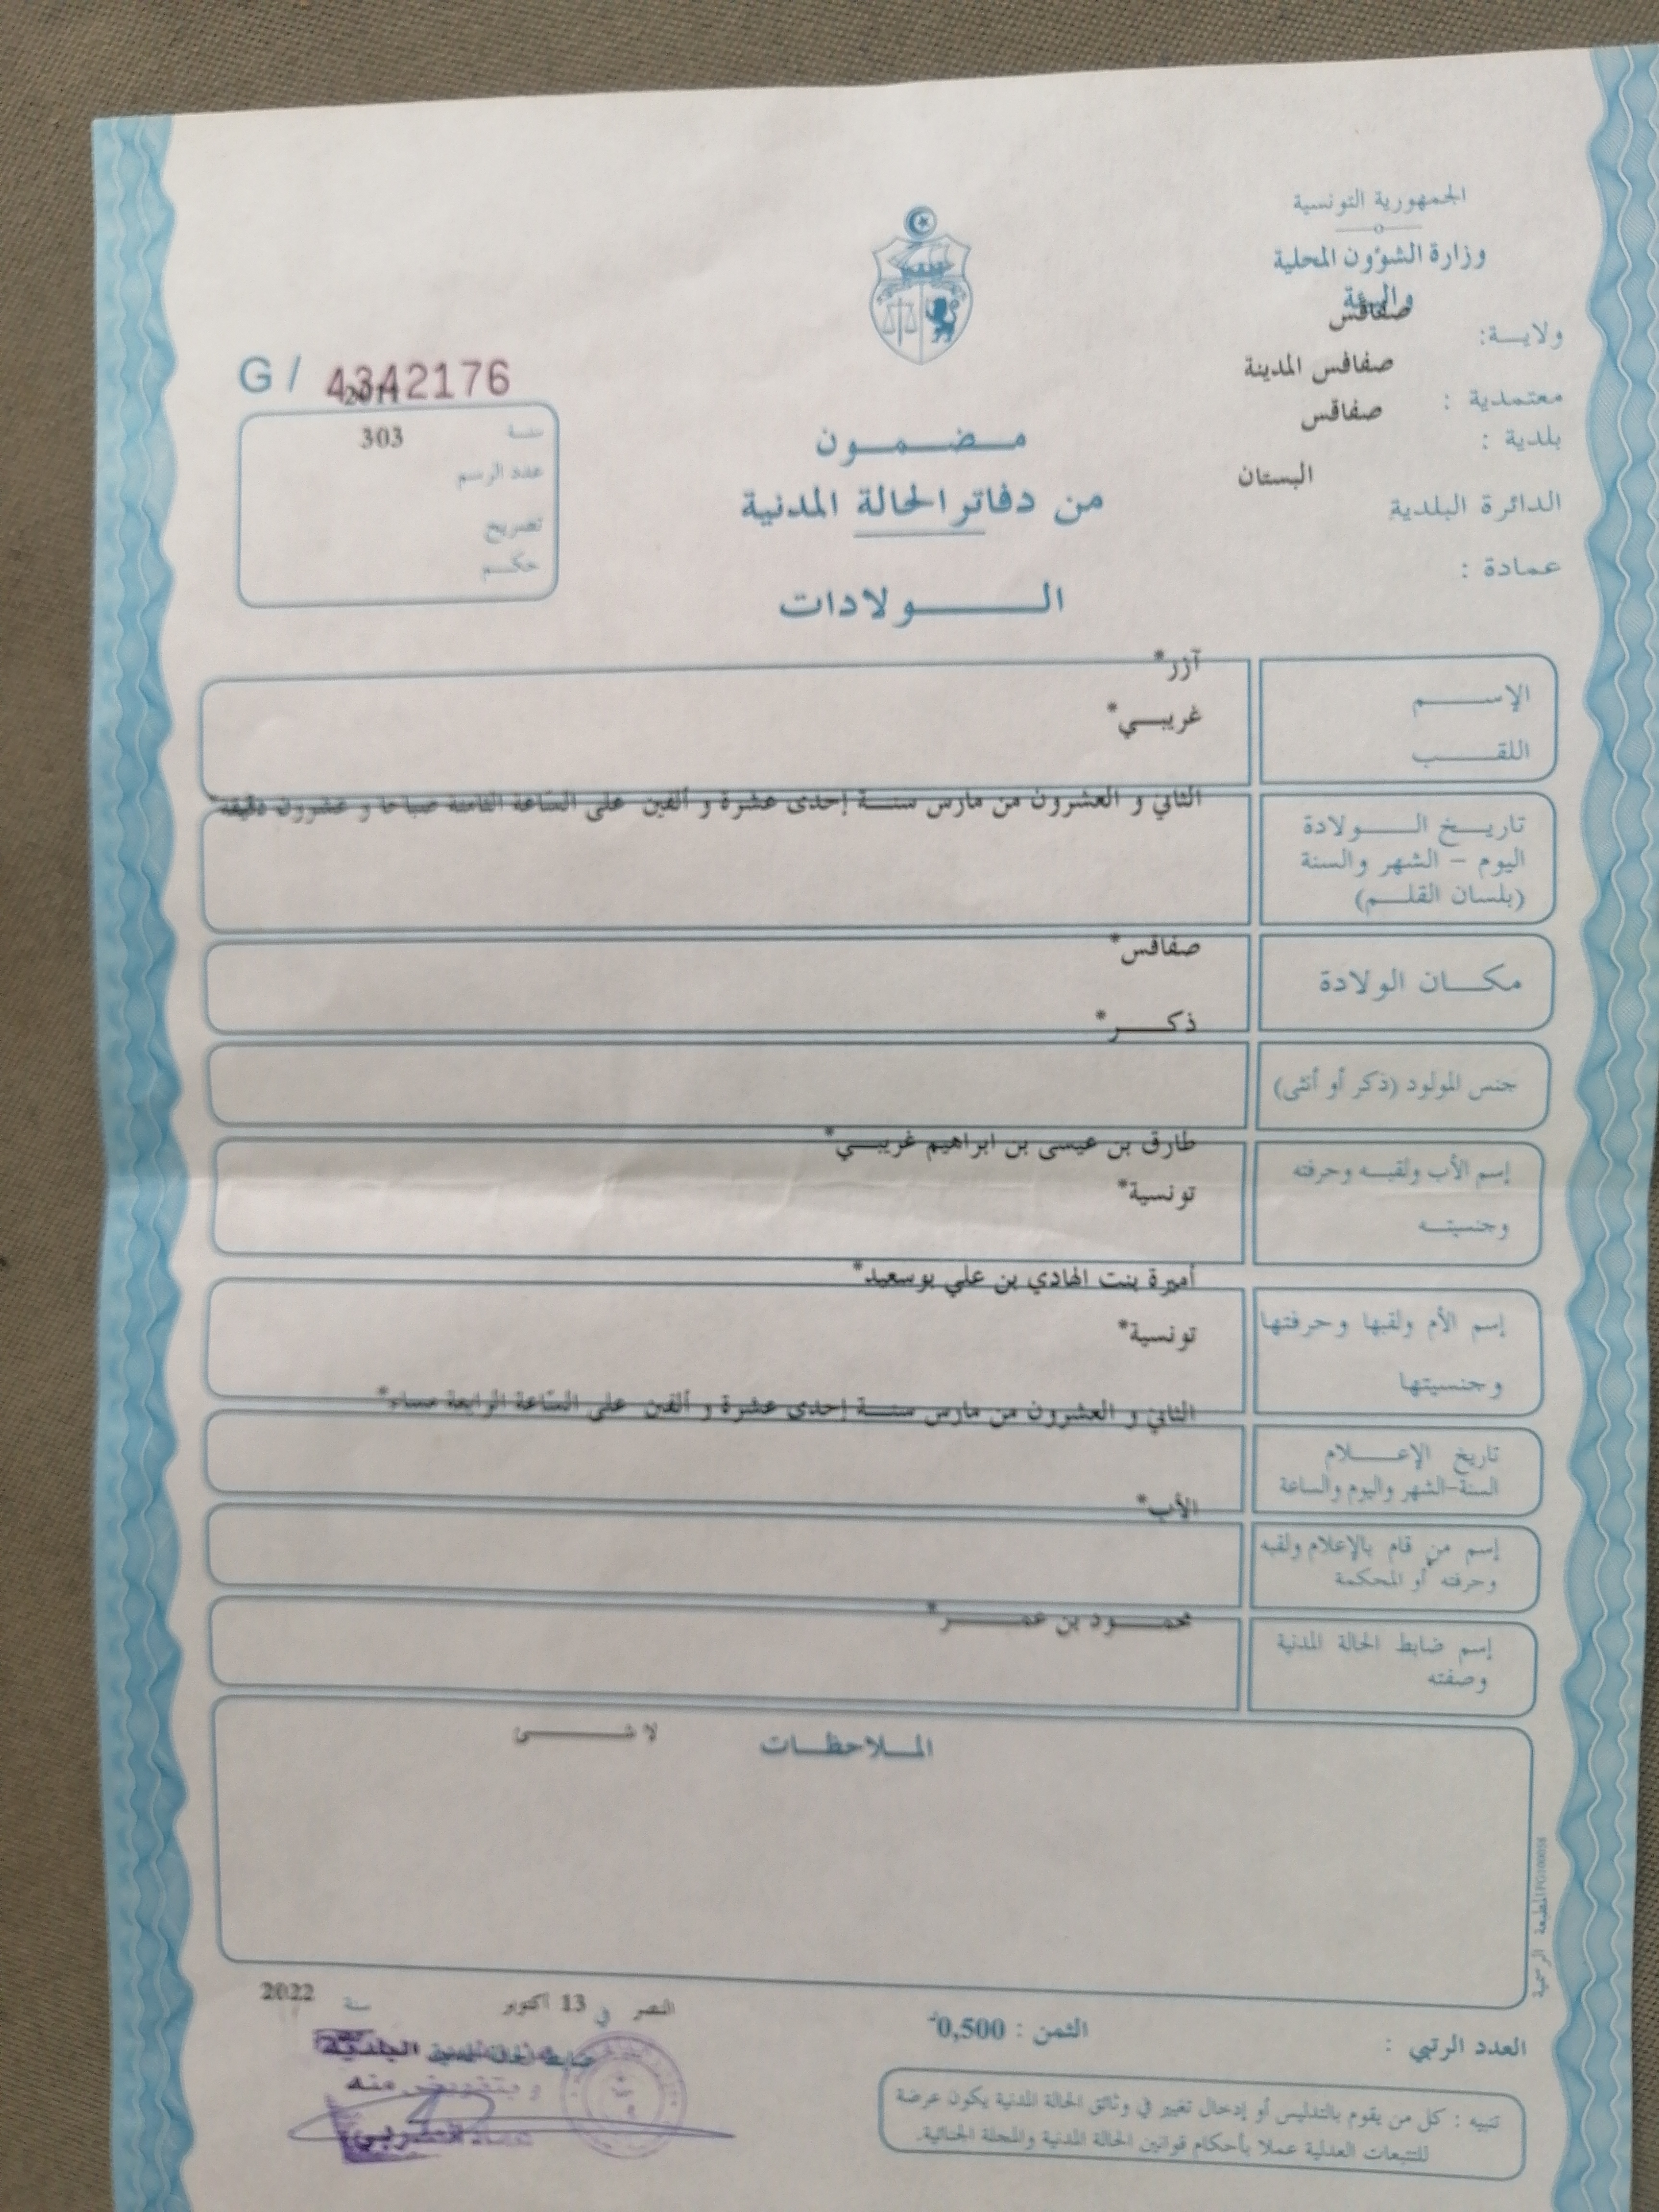 الجمهورية التونسية
وزارة الشؤون المحلية
والبيئة
ولايــة: صفاقس
معتمدية : صفاقس المدينة
بلدية : صفاقس
الدائرة البلدية البستان
عمادة :
G / 4342176
سنة 2011
عدد الرسم 303
تصريح
حكــم
مـــضـــمـــون
من دفاتر الحالة المدنية
الـــــولادات
الإســـــم آزر*
اللقــــب غريبــي*
تاريــخ الـــــولادة
اليوم – الشهر والسنة
(بلسان القلــم)
الثاني و العشرون من مارس سنــة إحدى عشرة و ألفين على السّاعة الثامنة صباحا و عشرون دقيقة*
مكـــان الولادة صفاقس*
جنس المولود (ذكر أو أنثى) ذكـــر*
إسم الأب ولقبــه وحرفته طارق بن عيسى بن ابراهيم غريبــي*
وجنسيتــه تونسية*
إسم الأم ولقبها وحرفتها أميرة بنت الهادي بن علي بوسعيد*
وجنسيتها تونسية*
تاريخ الإعـــلام
السنة-الشهر واليوم والساعة
الثاني و العشرون من مارس سنــة إحدى عشرة و ألفين على السّاعة الرابعة مساء*
إسم من قام بالإعلام ولقبه
وحرفته أو المحكمة
الأب*
إسم ضابط الحالة المدنية
وصفته
محمـــود بن عمـــر*
المــلاحظــات لا شـــــى
المطبعة الرسمية
النصر في 13 اكتوبر سنة 2022
ضابط الحالة المدنية
وبتفويض منه
العدد الرتبي :
الثمن : 0,500د
تنبيه : كل من يقوم بالتدليس أو إدخال تغيير في وثائق الحالة المدنية يكون عرضة
للتتبعات العدلية عملا بأحكام قوانين الحالة المدنية والمجلة الجنائية.